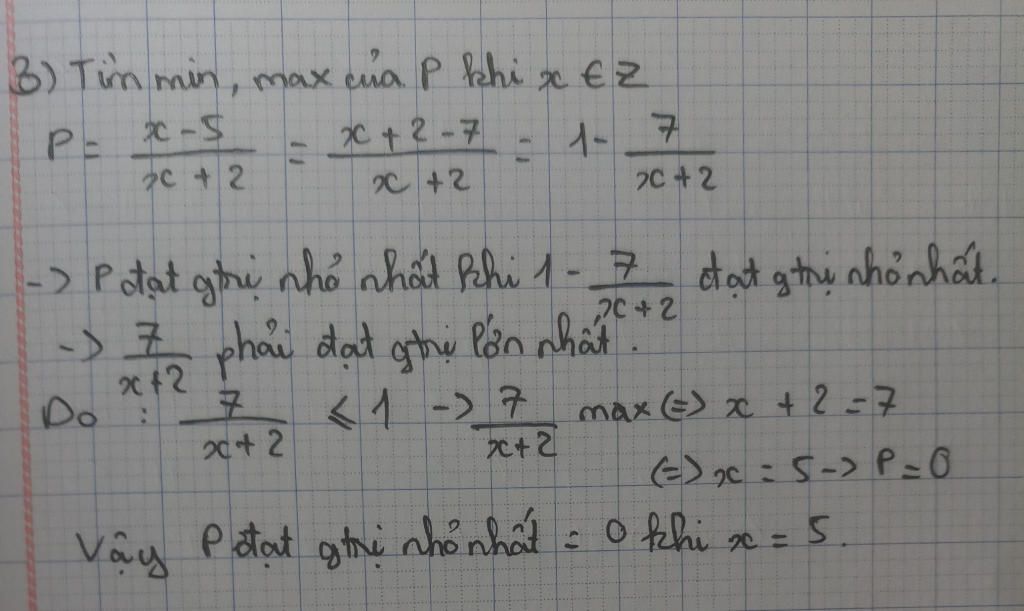 3) Tìm min, max của P khi x ∈ Z
P = (x - 5)/(x + 2) = (x + 2 - 7)/(x + 2) = 1 - 7/(x + 2)
-> P đạt gtrị nhỏ nhất khi 1 - 7/(x + 2) đạt gtrị nhỏ nhất.
-> 7/(x + 2) phải đạt gtrị lớn nhất.
Do : 7/(x + 2) ⩽ 1 -> 7/(x + 2) max (=> x + 2 = 7
(=> x = 5 -> P = 0
Vậy P đạt gtrị nhỏ nhất = 0 khi x = 5.